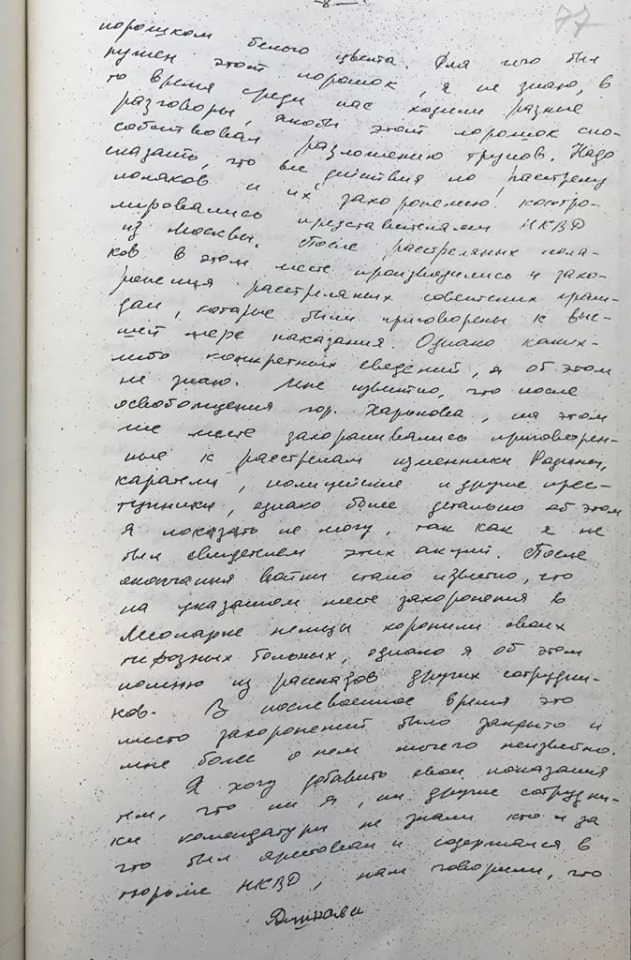 -8-
77
порошком белого цвета. Для чего был
нужен этот порошок, я не знаю, в
то время среди нас ходили разные
разговоры, якобы этот порошок спо-
собствовал разложению трупов. Надо
сказать, что все действия по расстрелу
поляков и их захоронению контро-
лировались представителями НКВД
из Москвы. После расстреляных поля-
ков в этом месте производились и захо-
ронения расстреляных советских граж-
дан, которые были приговорены к выс-
шей мере наказания. Однако каких-
либо конкретных сведений, я об этом
не знаю. Мне известно, что после
освобождения гор. Харькова, на этом
же месте захоранивались приговорен-
ные к расстрелам изменники Родины,
каратели, полицейские и другие прес-
тупники, однако более детально об этом
я показать не могу, так как я не
был свидетелем этих акций. После
окончания войны стало известно, что
на указанном месте захоронения в
лесопарке немцы хоронили своих
тифозных больных, однако я об этом
помню из рассказов других сотрудни-
ков. В послевоенное время это
место захоронений было закрыто и
мне более о нем ничего неизвестно.
Я хочу добавить свои показания
тем, что ни я, ни другие сотрудни-
ки комендатуры не знали кто и за
что был арестован и содержался в
тюрьме НКВД, нам говорили, что